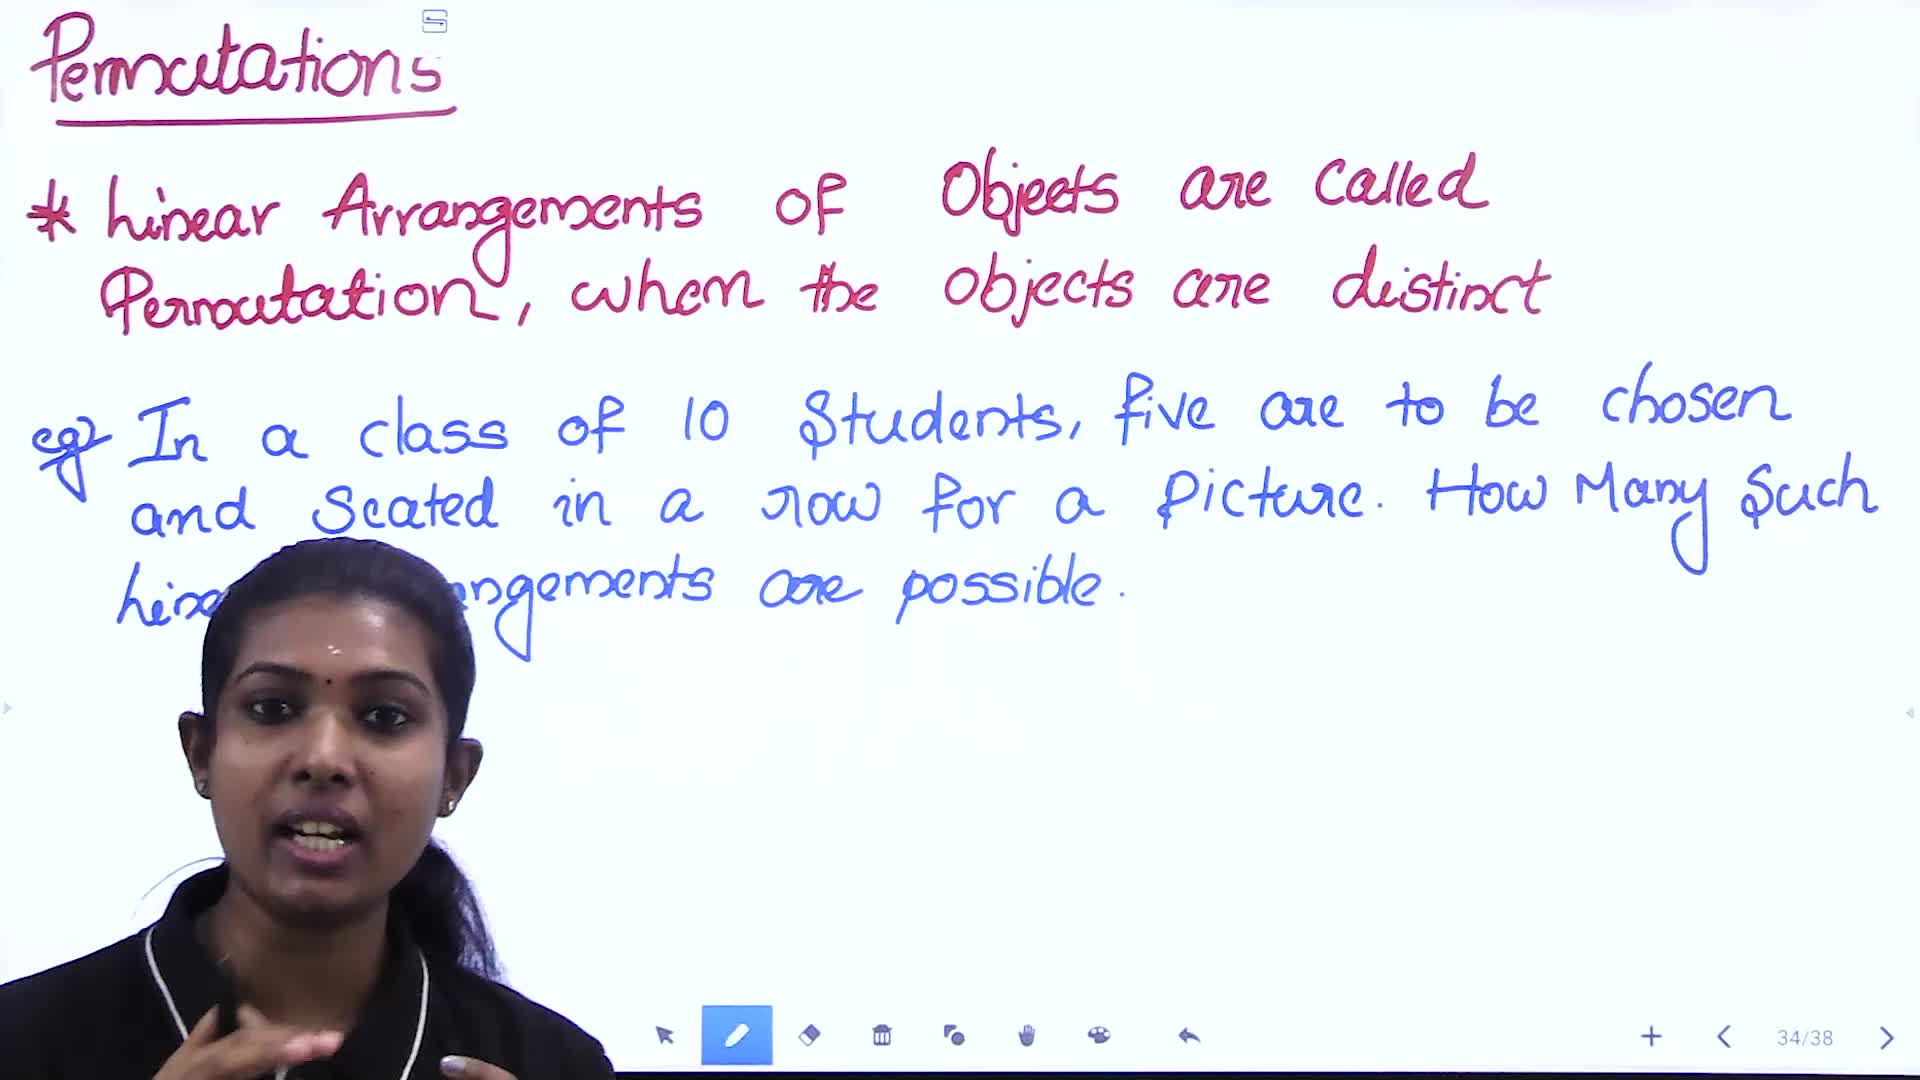 Permutations
* Linear Arrangements of Objects are called
Permutation, when the objects are distinct
eg) In a class of 10 Students, five are to be chosen
and Seated in a row for a picture. How Many Such
are possible.
34/38